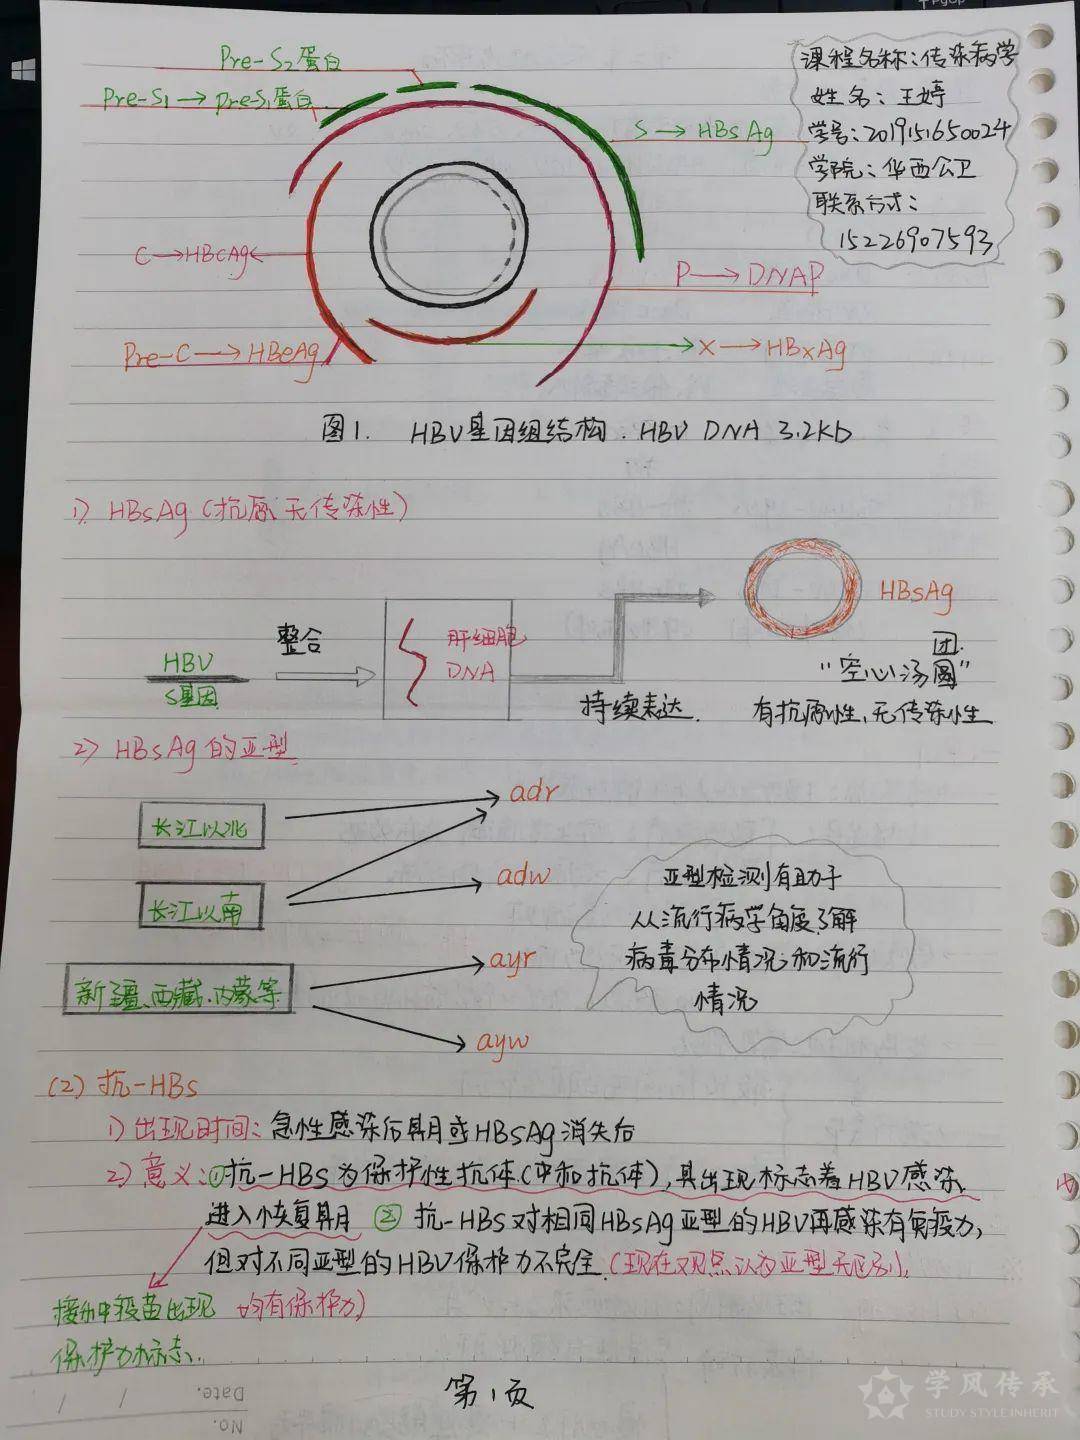 Pre-S₂蛋白
Pre-S₁→pre-S₁蛋白
S→HBsAg
课程名称：传染病学
姓名：王婷
学号：2019151650024
学院：华西公卫
联系方式：
15226907593
C→HBcAg
P→DNAP
Pre-C→HBeAg
X→HBxAg
图1. HBV基因组结构. HBV DNA 3.2Kb
1) HBsAg（抗原、无传染性）
HBV
S基因
整合
肝细胞
DNA
持续表达.
HBsAg
团.
"空心汤圆"
有抗原性、无传染性
2) HBsAg的亚型
长江以北
adr
长江以南
adw
新疆、西藏、内蒙等
ayr
ayw
亚型检测有助于
从流行病学角度了解
病毒分布情况和流行
情况
(2) 抗-HBs
1) 出现时间：急性感染后期或HBsAg消失后
2) 意义：①抗-HBs为保护性抗体(中和抗体)，其出现标志着HBV感染
进入恢复期 ② 抗-HBs对相同HBsAg亚型的HBV再感染有免疫力，
但对不同亚型的HBV保护力不完全.(现在观点认为亚型无区别，
均有保护力)
接种疫苗出现
保护力标志.
第1页
Date.
No.
学风传承
STUDY STYLE INHERIT